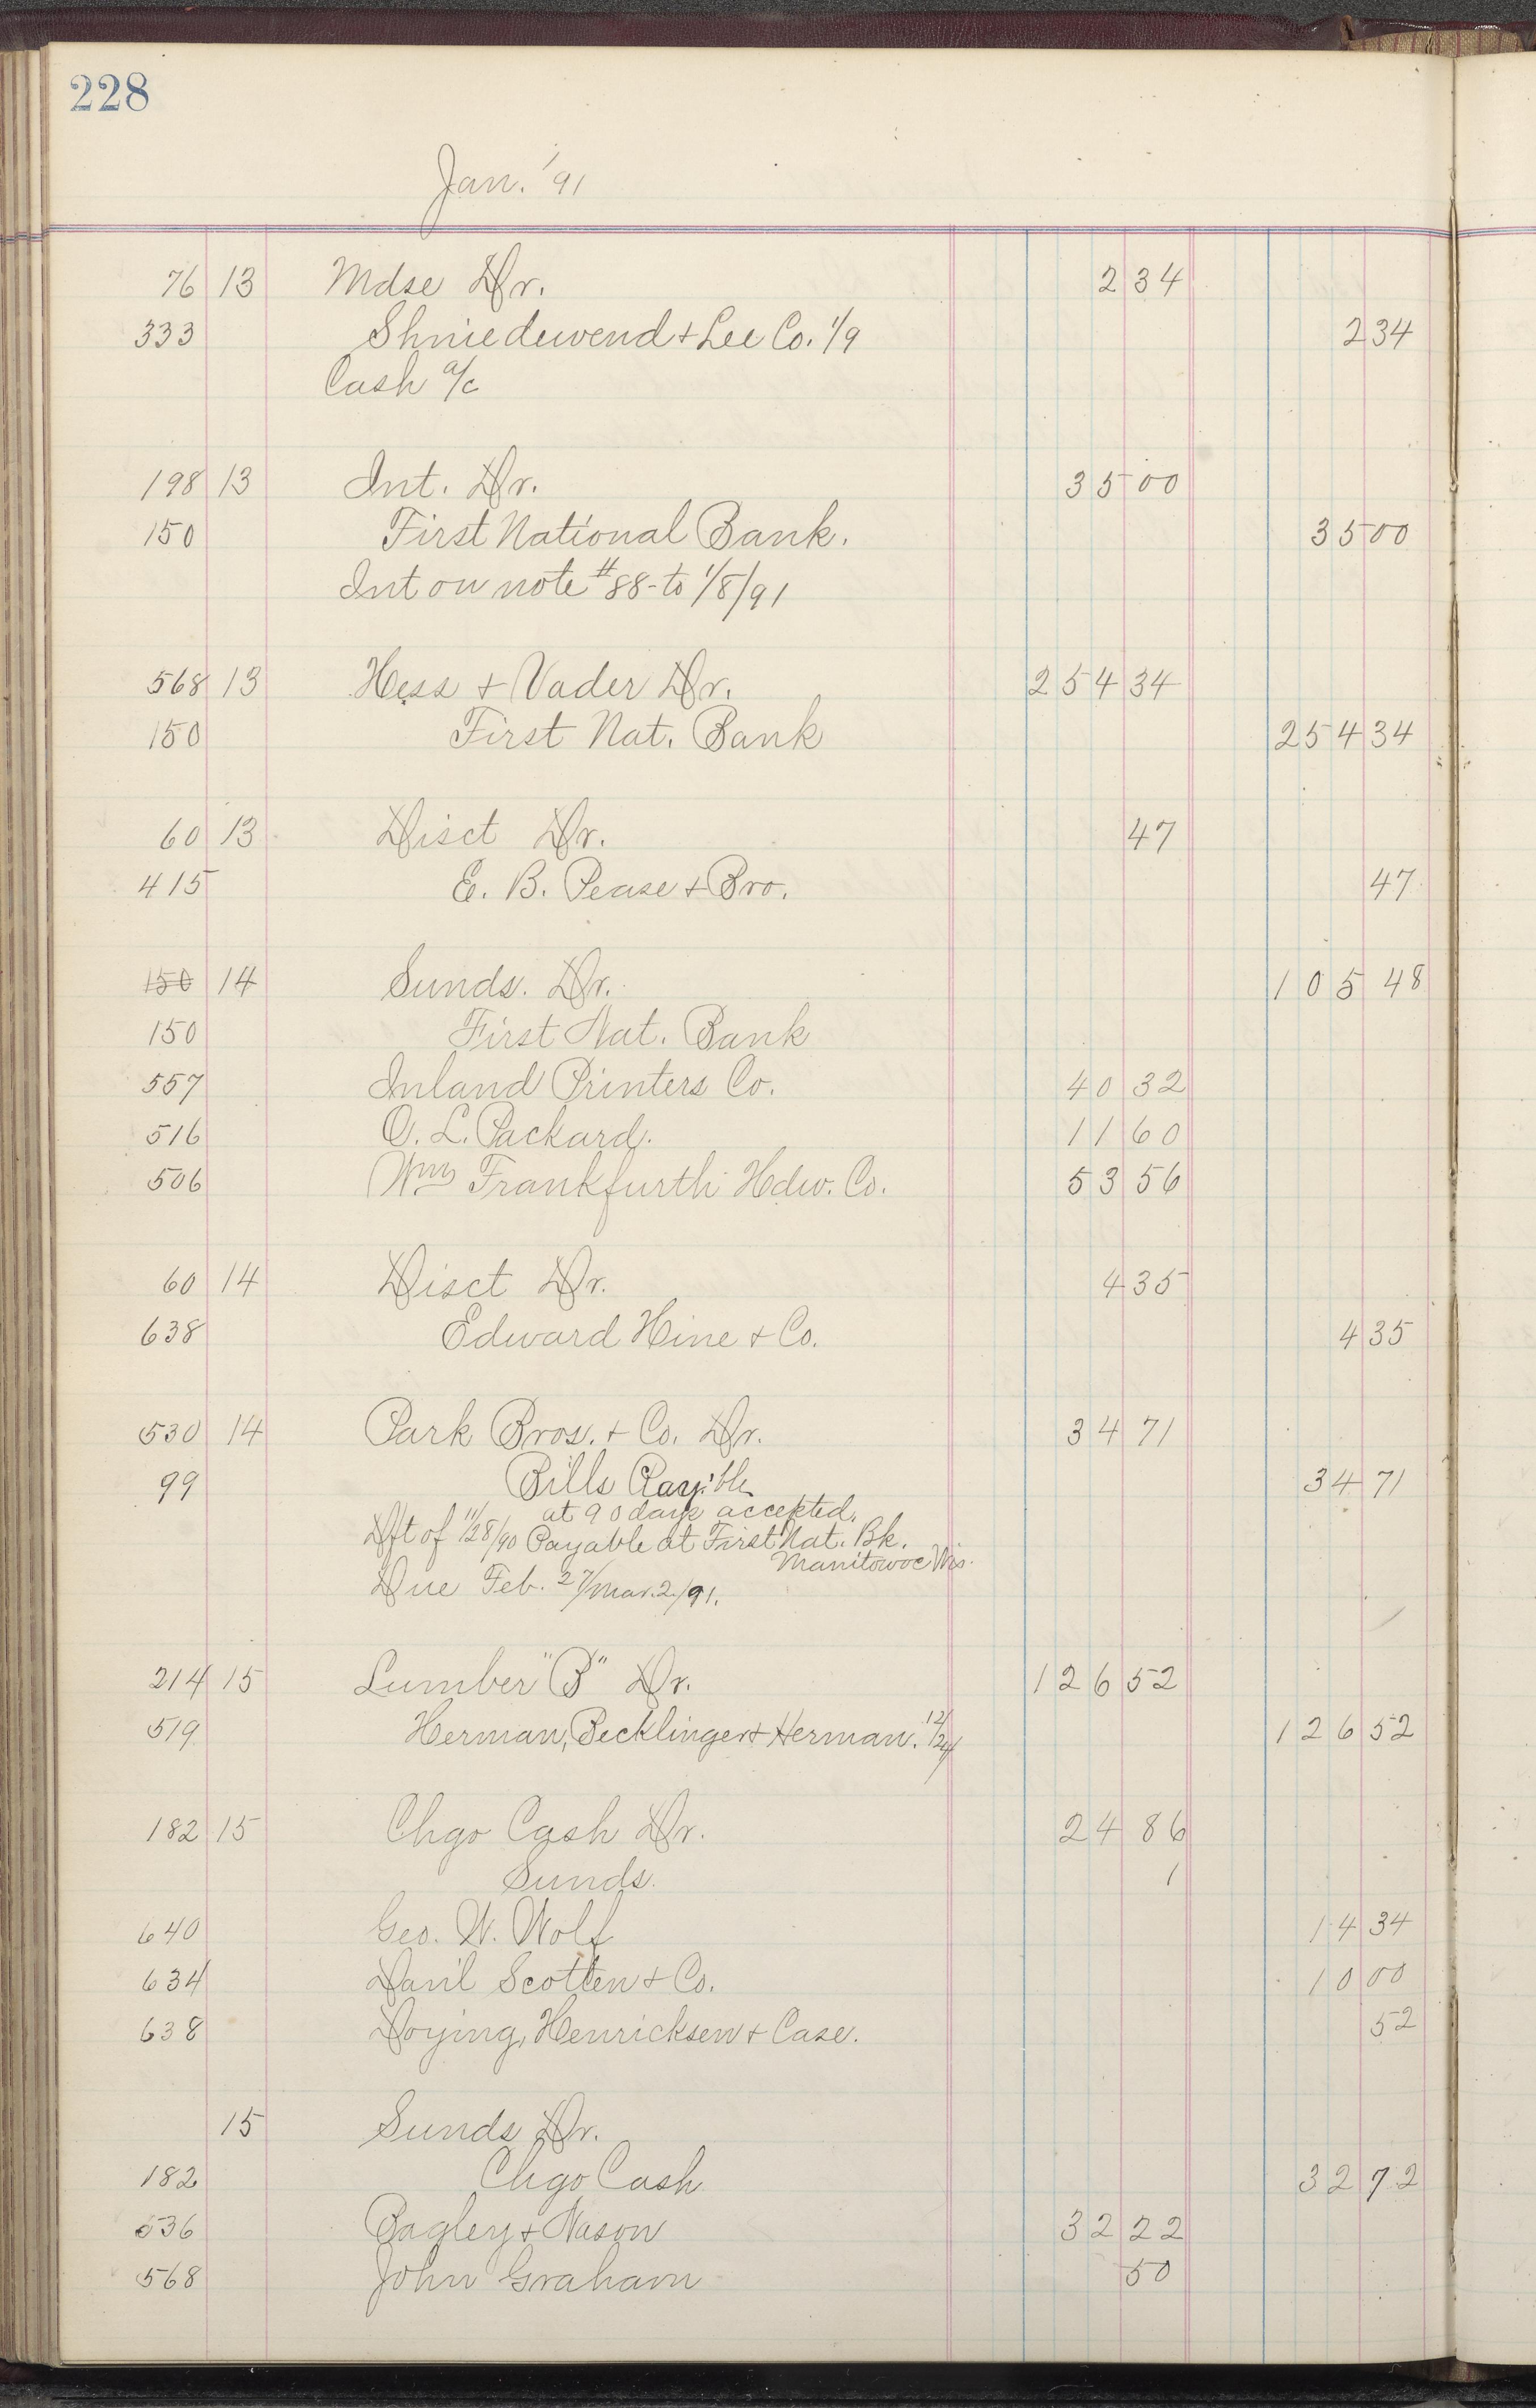 228
Jan. '91
76 13 Mdse Dr. 2 34
333 Shniedewend & Lee Co. 1/9 2 34
Cash a/c
198 13 Int. Dr. 35 00
150 First National Bank. 35 00
Int on note #88 - to 1/8/91
568 13 Hess & Vader Dr. 254 34
150 First Nat. Bank 254 34
60 13 Disct Dr. 47
415 E. B. Pease & Bro. 47
150 14 Sunds. Dr. 105 48
150 First Nat. Bank
557 Inland Printers Co. 40 32
516 O. L. Packard. 11 60
506 Wm Frankfurth Hdw. Co. 53 56
60 14 Disct Dr. 4 35
638 Edward Hine & Co. 4 35
530 14 Park Bros. & Co. Dr. 34 71
99 Bills Pay'ble 34 71
at 90 days accepted.
Dft of 11/28/90 Payable at First Nat. Bk.
Manitowoc Wis.
Due Feb. 27/Mar. 2/91.
214 15 Lumber "B" Dr. 126 52
519 Herman, Becklinger & Herman. 12/24 126 52
182 15 Chgo Cash Dr. 24 86
Sunds. 1
640 Geo. W. Wolf 14 34
634 Danl Scotten & Co. 10 00
638 Doying, Henricksen & Case. 52
15 Sunds Dr.
182 Chgo Cash 32 72
536 Bagley & Nason 32 22
568 John Graham 50